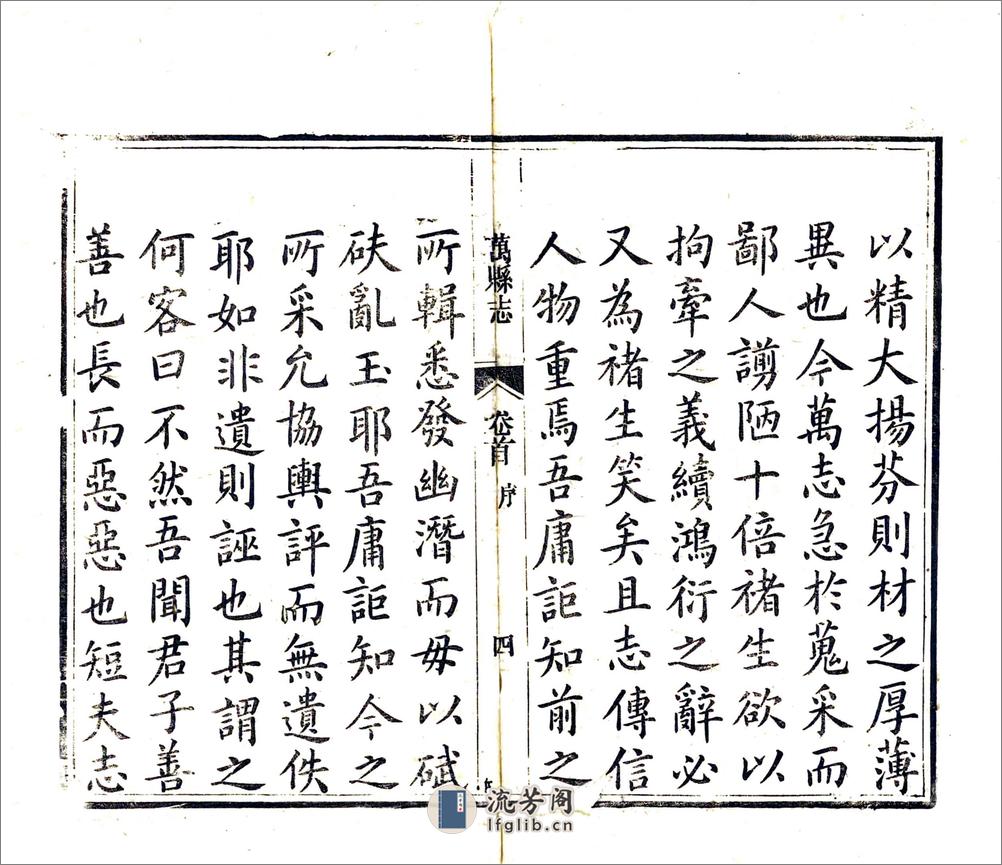 以精大揚芬則材之厚薄
異也今萬志急於蒐采而
鄙人謭陋十倍褚生欲以
拘牽之義續鴻衍之辭必
又為褚生笑矣且志傳信
人物重焉吾庸詎知前之
萬縣志 卷首 序 四
所輯悉發幽潛而毋以碔
砆亂玉耶吾庸詎知今之
所采允協輿評而無遺佚
耶如非遺則誣也其謂之
何客曰不然吾聞君子善
善也長而惡惡也短夫志
流芳阁
lfglib.cn